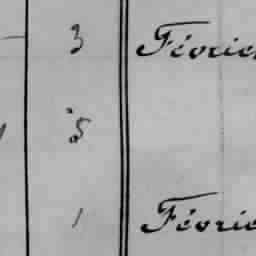 3 Février
5
1 Février